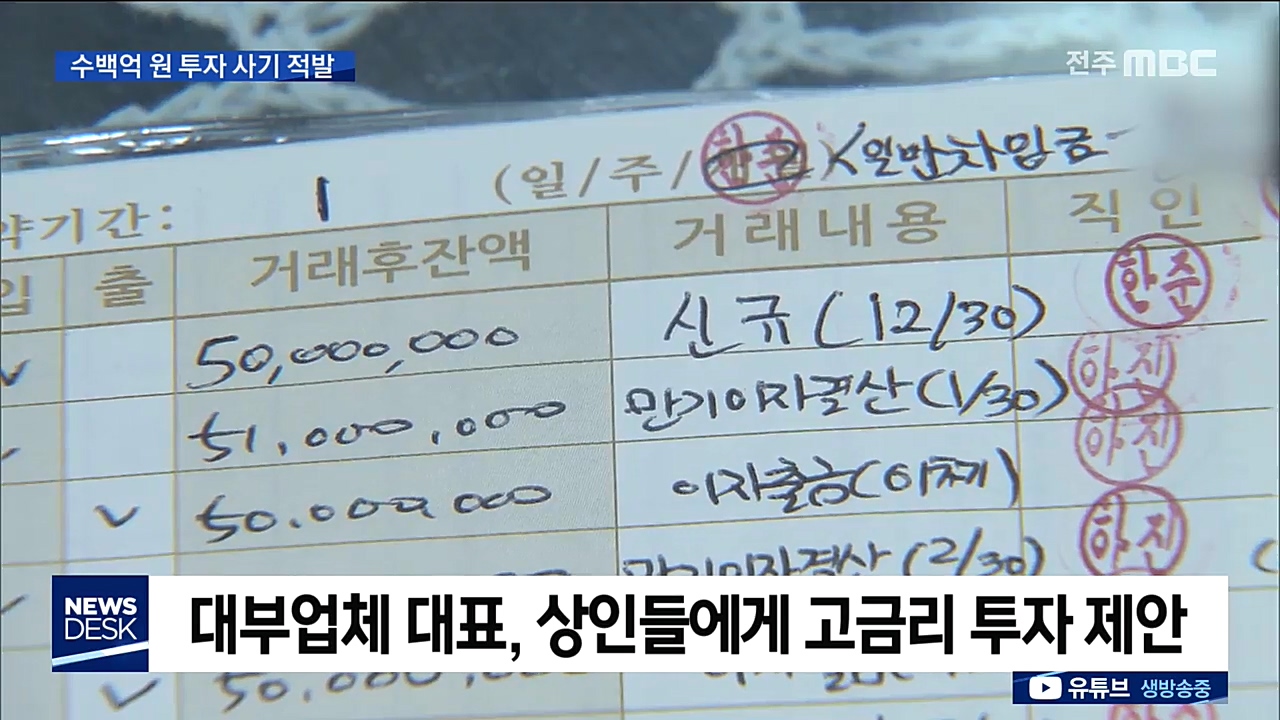 수백억 원 투자 사기 적발
전주 MBC
(일/주/ ) 일반차입금
약기간: 1
입 출 거래후잔액 거래내용 직인
50,000,000 신규(12/30) 한준
51,000,000 만기이자결산(1/30) 하진
50.000.000 이자출금(이체) 하진
만기이자결산(2/30) 하진
NEWS DESK
대부업체 대표, 상인들에게 고금리 투자 제안
50.000.000
유튜브 생방송중